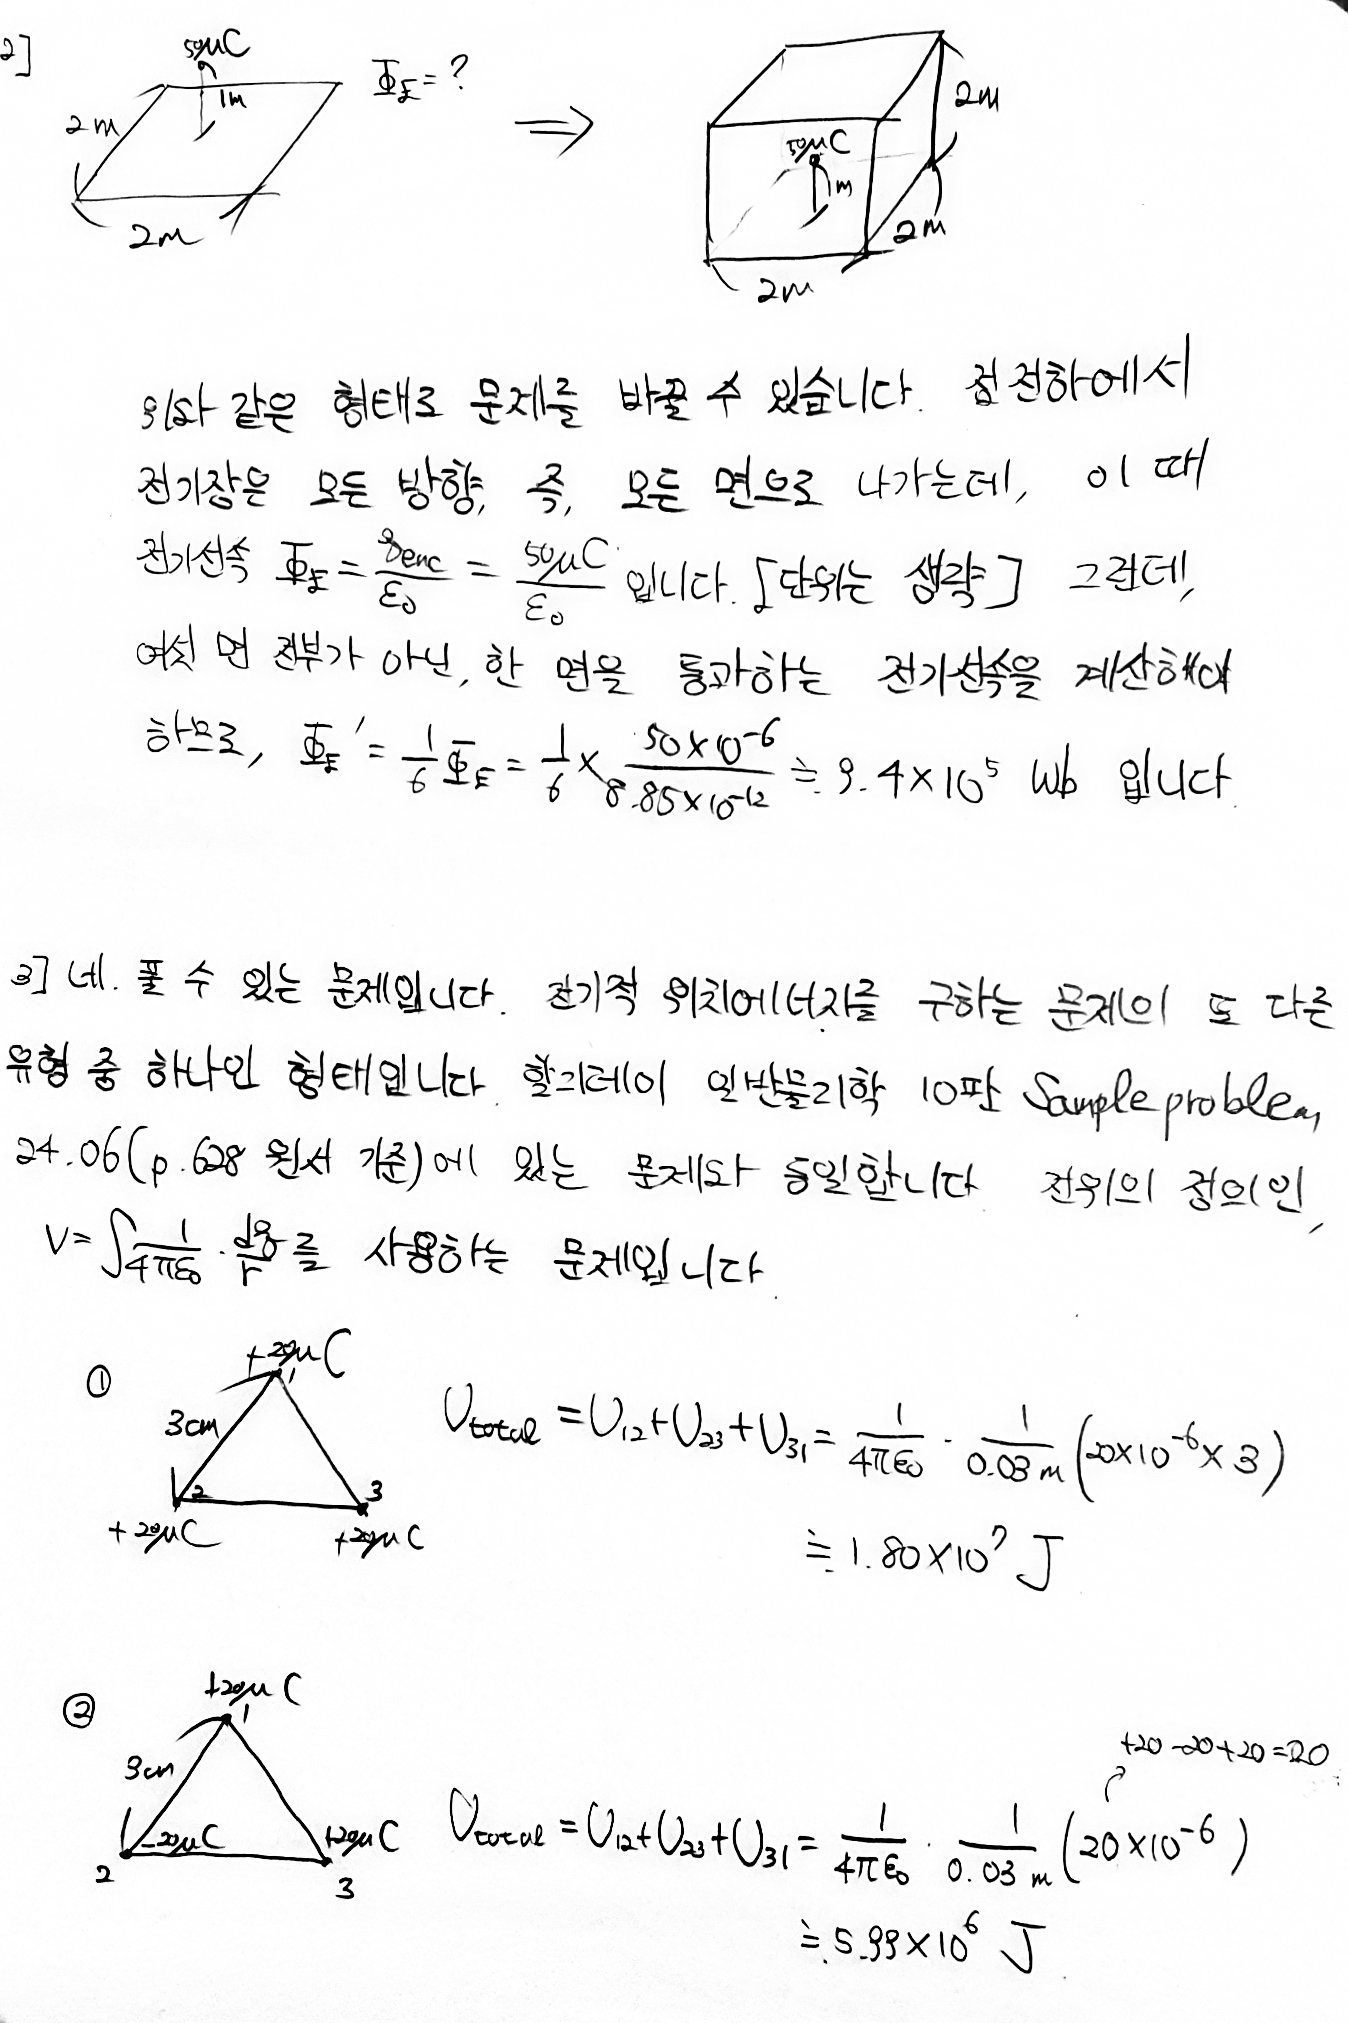 2]
50μC
1m
2m
2m
Φ_E = ?
⇒
50μC
1m
2m
2m
2m
위와 같은 형태로 문제를 바꿀 수 있습니다. 점전하에서
전기장은 모든 방향, 즉, 모든 면으로 나가는데, 이 때
전기선속 Φ_E = q_enc/ε₀ = 50μC/ε₀ 입니다. [단위는 생략] 그런데,
여섯 면 전부가 아닌, 한 면을 통과하는 전기선속을 계산해야
하므로, Φ_E' = 1/6 Φ_E = 1/6 × 50×10⁻⁶/8.85×10⁻¹² ≒ 9.4×10⁵ Wb 입니다.
3] 네. 풀 수 있는 문제입니다. 전기적 위치에너지를 구하는 문제의 또 다른
유형 중 하나인 형태입니다. 할리데이 일반물리학 10판 Sample problem
24.06(p.628 원서 기준)에 있는 문제와 동일합니다. 전위의 정의인,
V = ∫ 1/4πε₀ · dq/r 를 사용하는 문제입니다.
①
+20μC
1
3cm
2
3
+20μC
+20μC
U_total = U₁₂+U₂₃+U₃₁ = 1/4πε₀ · 1/0.03m (20×10⁻⁶×3)
≒ 1.80×10⁷ J
②
+20μC
1
3cm
-20μC
+20μC
2
3
+20-20+20=20
U_total = U₁₂+U₂₃+U₃₁ = 1/4πε₀ · 1/0.03m (20×10⁻⁶)
≒ 5.99×10⁶ J